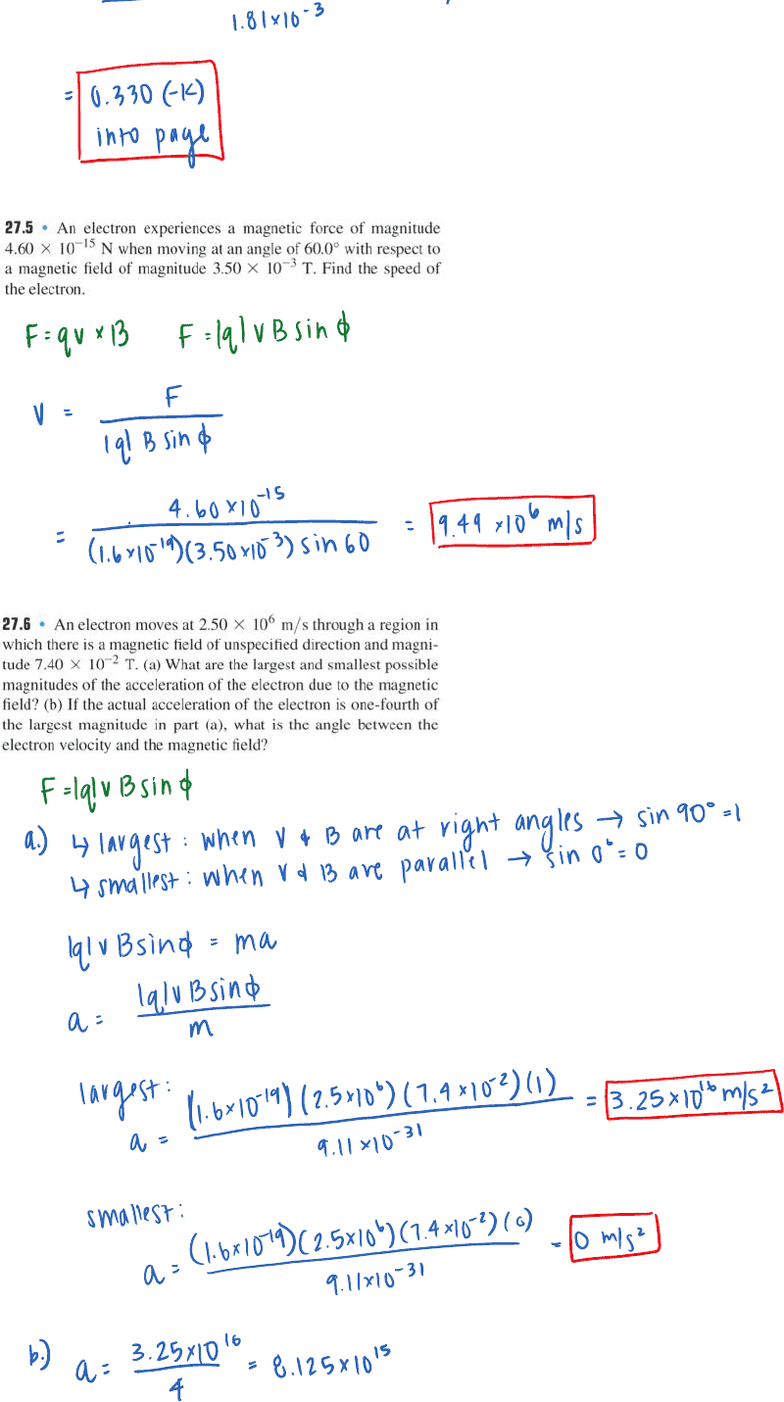 1.81×10⁻³
= 0.330 (-k)
into page
27.5 • An electron experiences a magnetic force of magnitude
4.60 × 10⁻¹⁵ N when moving at an angle of 60.0° with respect to
a magnetic field of magnitude 3.50 × 10⁻³ T. Find the speed of
the electron.
F = qv × B F = |q| v B sin ϕ
v = F / |q| B sin ϕ
= 4.60 ×10⁻¹⁵ / (1.6×10⁻¹⁹)(3.50×10⁻³) sin 60 = 9.49 ×10⁶ m/s
27.6 • An electron moves at 2.50 × 10⁶ m/s through a region in
which there is a magnetic field of unspecified direction and magni-
tude 7.40 × 10⁻² T. (a) What are the largest and smallest possible
magnitudes of the acceleration of the electron due to the magnetic
field? (b) If the actual acceleration of the electron is one-fourth of
the largest magnitude in part (a), what is the angle between the
electron velocity and the magnetic field?
F = |q| v B sin ϕ
a.) ↳ largest : when v & B are at right angles → sin 90° = 1
↳ smallest : when v & B are parallel → sin 0° = 0
|q| v B sin ϕ = ma
a = |q| v B sin ϕ / m
largest:
a = (1.6×10⁻¹⁹)(2.5×10⁶)(7.4×10⁻²)(1) / 9.11×10⁻³¹ = 3.25×10¹⁶ m/s²
smallest:
a = (1.6×10⁻¹⁹)(2.5×10⁶)(7.4×10⁻²)(0) / 9.11×10⁻³¹ = 0 m/s²
b.) a = 3.25×10¹⁶ / 4 = 8.125×10¹⁵